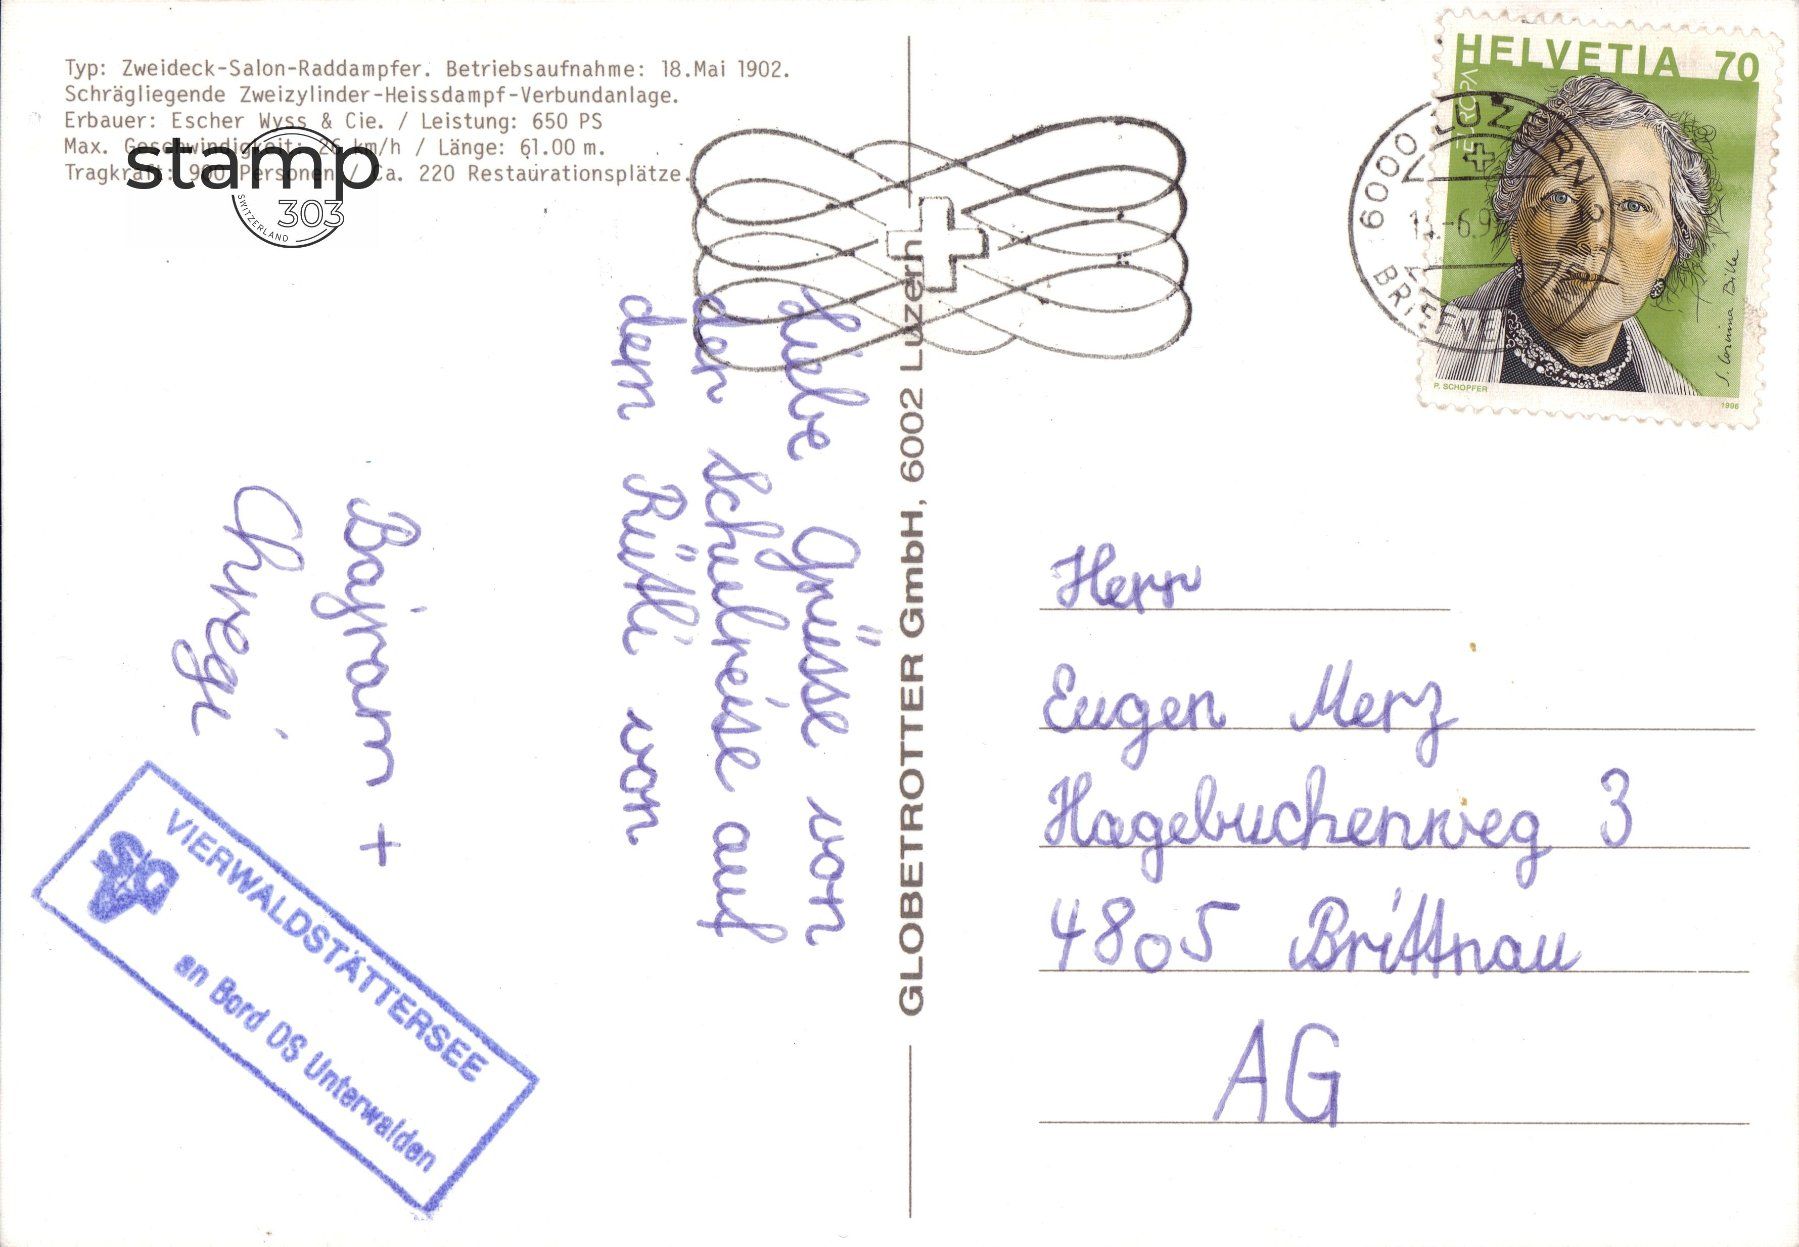 Typ: Zweideck-Salon-Raddampfer. Betriebsaufnahme: 18.Mai 1902.
Schrägliegende Zweizylinder-Heissdampf-Verbundanlage.
Erbauer: Escher Wyss & Cie. / Leistung: 650 PS
Max. Geschwindigkeit: 26 km/h / Länge: 61.00 m.
Tragkraft: 900 Personen / Ca. 220 Restaurationsplätze.
stamp
303
SWITZERLAND
HELVETIA 70
EUROPA
S. Corinna Bille
P. SCHOPFER
1996
6000 LUZERN 2
BRIEFVE
Liebe Grüsse von
der Schulreise auf
dem Rütli von
Bajram +
Chregi
GLOBETROTTER GmbH, 6002 Luzern
Herr
Eugen Merz
Hagebuchenweg 3
4805 Brittnau
AG
VIERWALDSTÄTTERSEE
SGV
an Bord DS Unterwalden